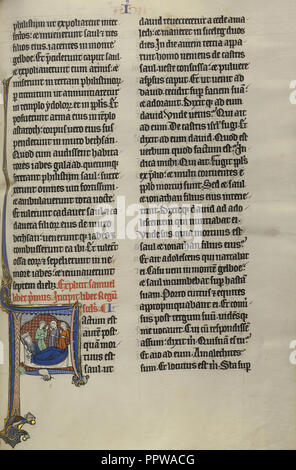 philistiim ut expoliarent inter
fectos: et inuenerunt saul et tres
filios eius iacentes in monte
gelboe. Et preciderunt caput saul
et expoliauerunt eum armis et
miserunt in terram philistinor
per circuitum ut annunciaretur
in templo ydolor et in plis. Et
posuerunt arma eius in templo
astaroth: corpus uero eius sus
penderunt in muro bethsan.
Quod cum audissent habita
tores iabes galaad quecumque
fecerant philistiim saul: surrex
erunt omnes uiri fortissimi
et ambulauerunt tota nocte.
Et tulerunt cadauer saul et ca
dauera filiorum eius de muro
bethsan: uenerunt iabes et
combusserunt ea ibi. Et tulerunt
ossa eorum et sepelierunt in ne
more iabes: et ieiunauerunt
septem dieb. Explicit samuel
liber primus. Incipit liber Regum
Factum est
autem post
quam mor
tuus est
saul ut
dauid reuerteretur a cede ama
lech: et maneret in siceleg duos
dies. In die autem tercia appa
ruit homo ueniens de castris
saul: ueste conscissa et puluere
aspersus caput. Et ut uenit ad
dauid: cecidit super faciem suam
et adorauit. Dixitque ad eum
dauid. Unde uenis. Qui ait
ad eum. De castris israel fugi. Et
dixit ad eum dauid. Quod est
uerbum quod factum est. In
dica michi. Qui ait. Fugit ppls
ex prelio: et multi corruentes e
populo mortui sunt. Sed et saul
et ionathas filius eius
interierunt. Dixitque dauid ad ado
lescentem qui nunciabat ei.
Unde scis quia mortuus est saul
et ionathan filius eius.
Et ait adolescens qui narrabat
ei. Casu ueni in montem gelboe:
et saul incumbebat super hastam
suam. Porro currus et equites
appropinquabant ei. Et conuer
sus post tergum suum: uidensque
me uocauit. Cui cum respondisse
assum: dixit m. Quisnam es tu.
Et aio ad eum. Amalechites
sum. Et locutus est m. Sta sup